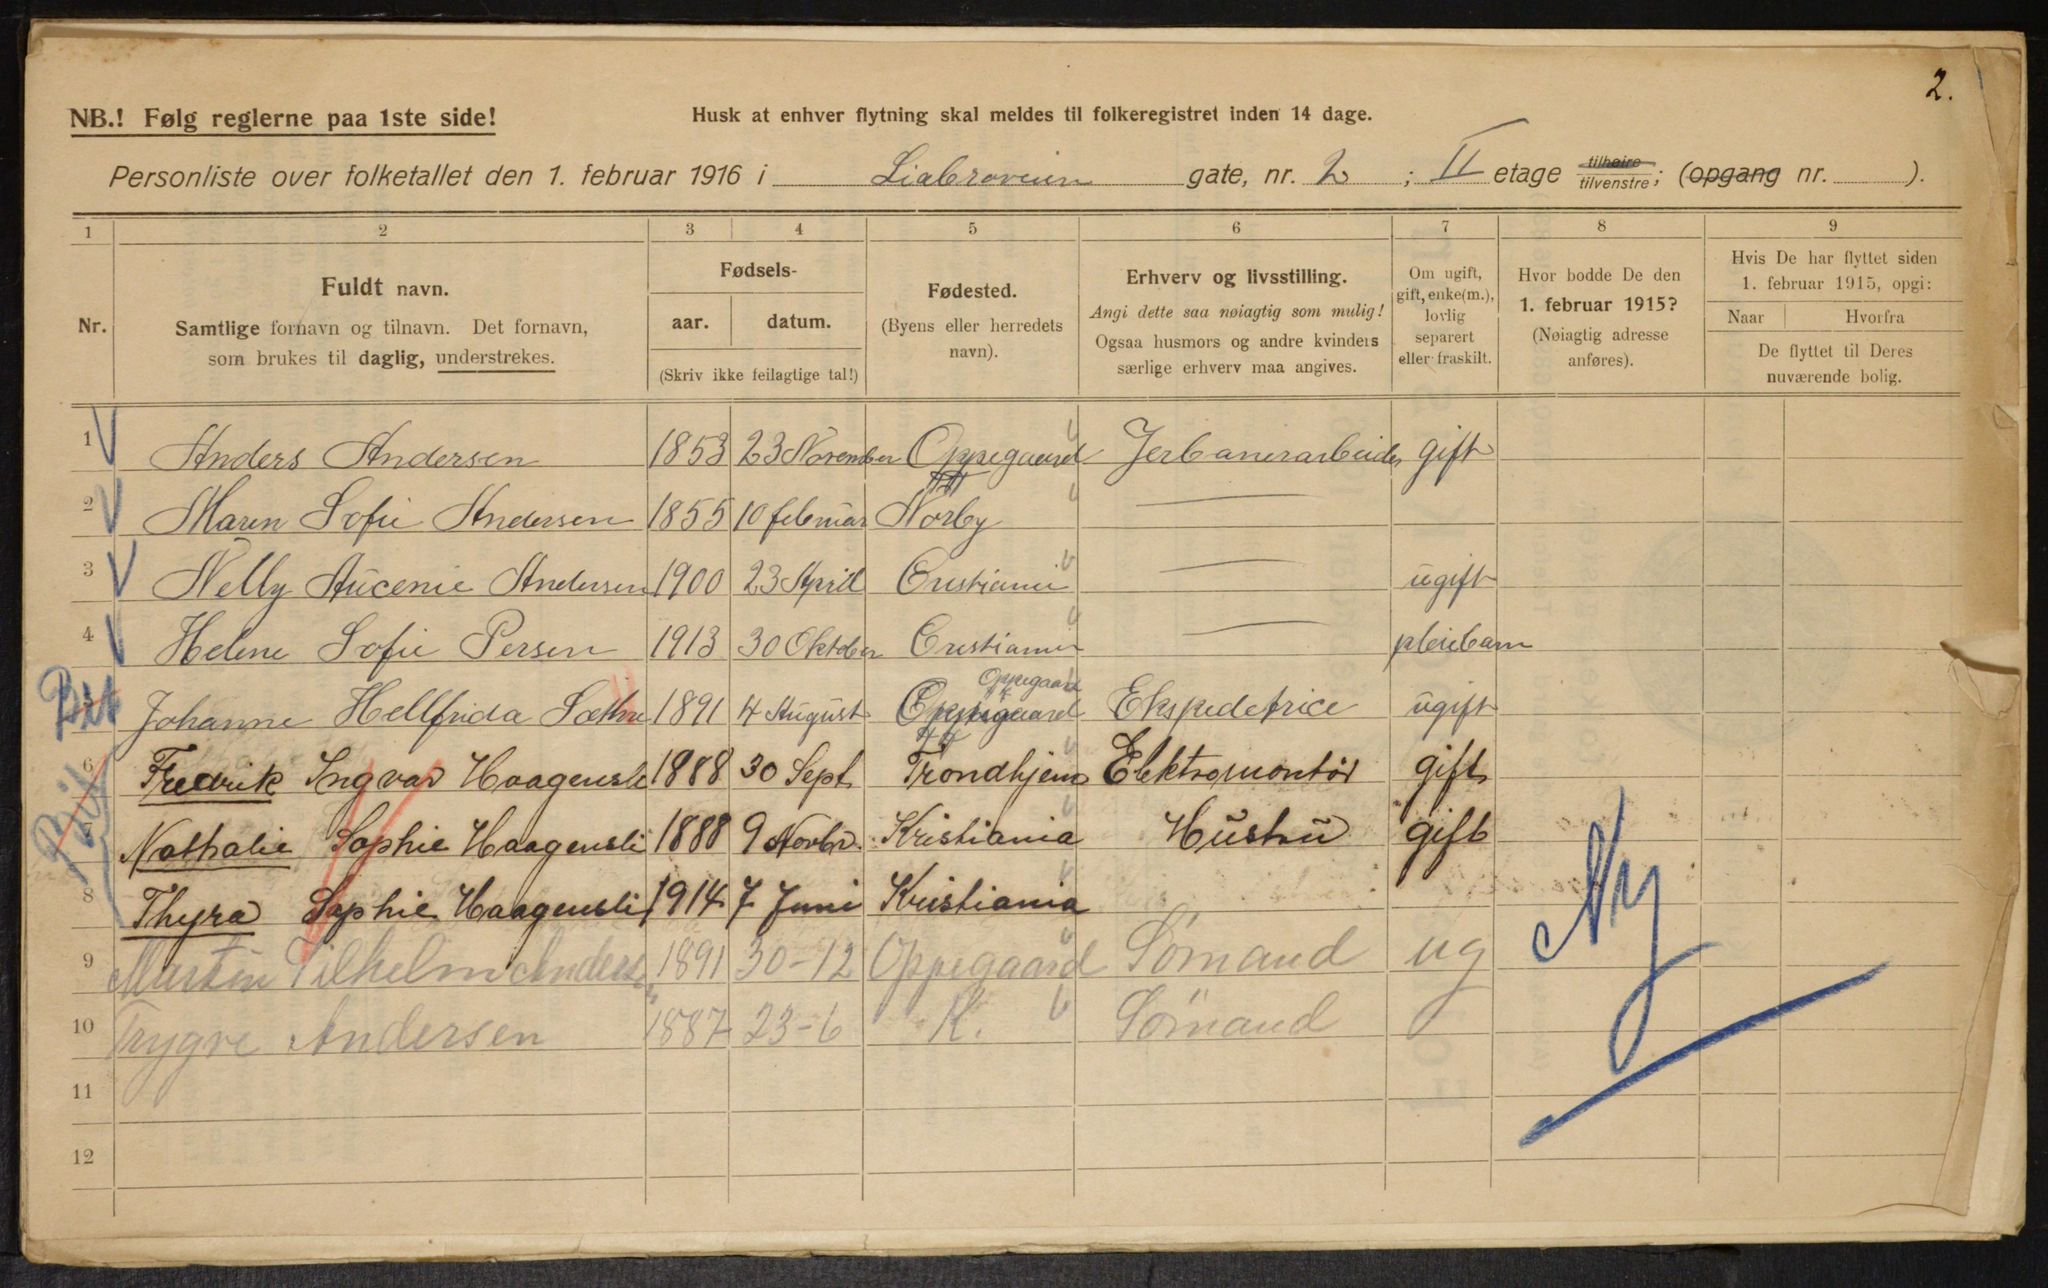 2.
NB.! Følg reglerne paa 1ste side!
Husk at enhver flytning skal meldes til folkeregistret inden 14 dage.
Personliste over folketallet den 1. februar 1916 i Liabroveien gate, nr. 2 ; II etage tilhøire tilvenstre; (opgang nr. ).
1 2 3 4 5 6 7 8 9
Nr.
Fuldt navn.
Samtlige fornavn og tilnavn. Det fornavn,
som brukes til daglig, understrekes.
Fødsels-
aar. datum.
(Skriv ikke feilagtige tal!)
Fødested.
(Byens eller herredets
navn).
Erhverv og livsstilling.
Angi dette saa nøiagtig som mulig!
Ogsaa husmors og andre kvinders
særlige erhverv maa angives.
Om ugift,
gift, enke(m.),
lovlig
separert
eller fraskilt.
Hvor bodde De den
1. februar 1915?
(Nøiagtig adresse
anføres).
Hvis De har flyttet siden
1. februar 1915, opgi:
Naar Hvorfra
De flyttet til Deres
nuværende bolig.
1 Anders Andersen 1853 23 November Oppegaard Jerbanerarbeider gift
2 Maren Sofie Andersen 1855 10 februar Norby
3 Nelly Aucenie Andersen 1900 23 April Cristiania ugift
4 Helene Sofie Persen 1913 30 Oktober Cristiania pleiebarn
Oppegaard
Johanne Hellfrida Sæthre 1891 4 August Oppegaard Ekspedetrice ugift
6 Fredrik Ingvar Haagensli 1888 30 Sept Trondhjem Elektromontør gift
7 Nathalie Sophie Haagensli 1888 9 Novbr. Kristiania Hustru gift
8 Thyra Sophie Haagensli 1914 7 Juni Kristiania
9 Martin Vilhelm Anders 1891 30-12 Oppegaard Sømand ug
10 Trygve Andersen 1887 23-6 K. Sømand
11
12
Ny